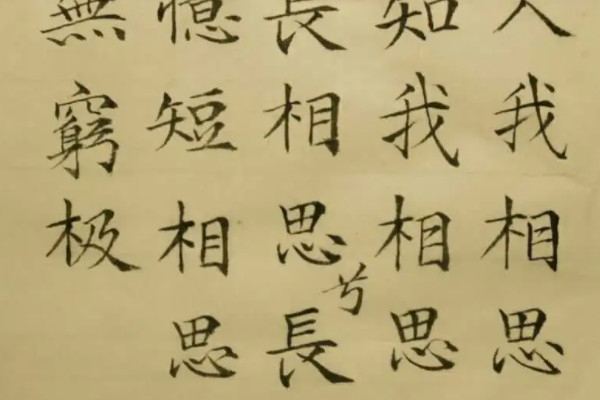 入我相思
知我相思
長相思兮長
憶短相思
無窮极